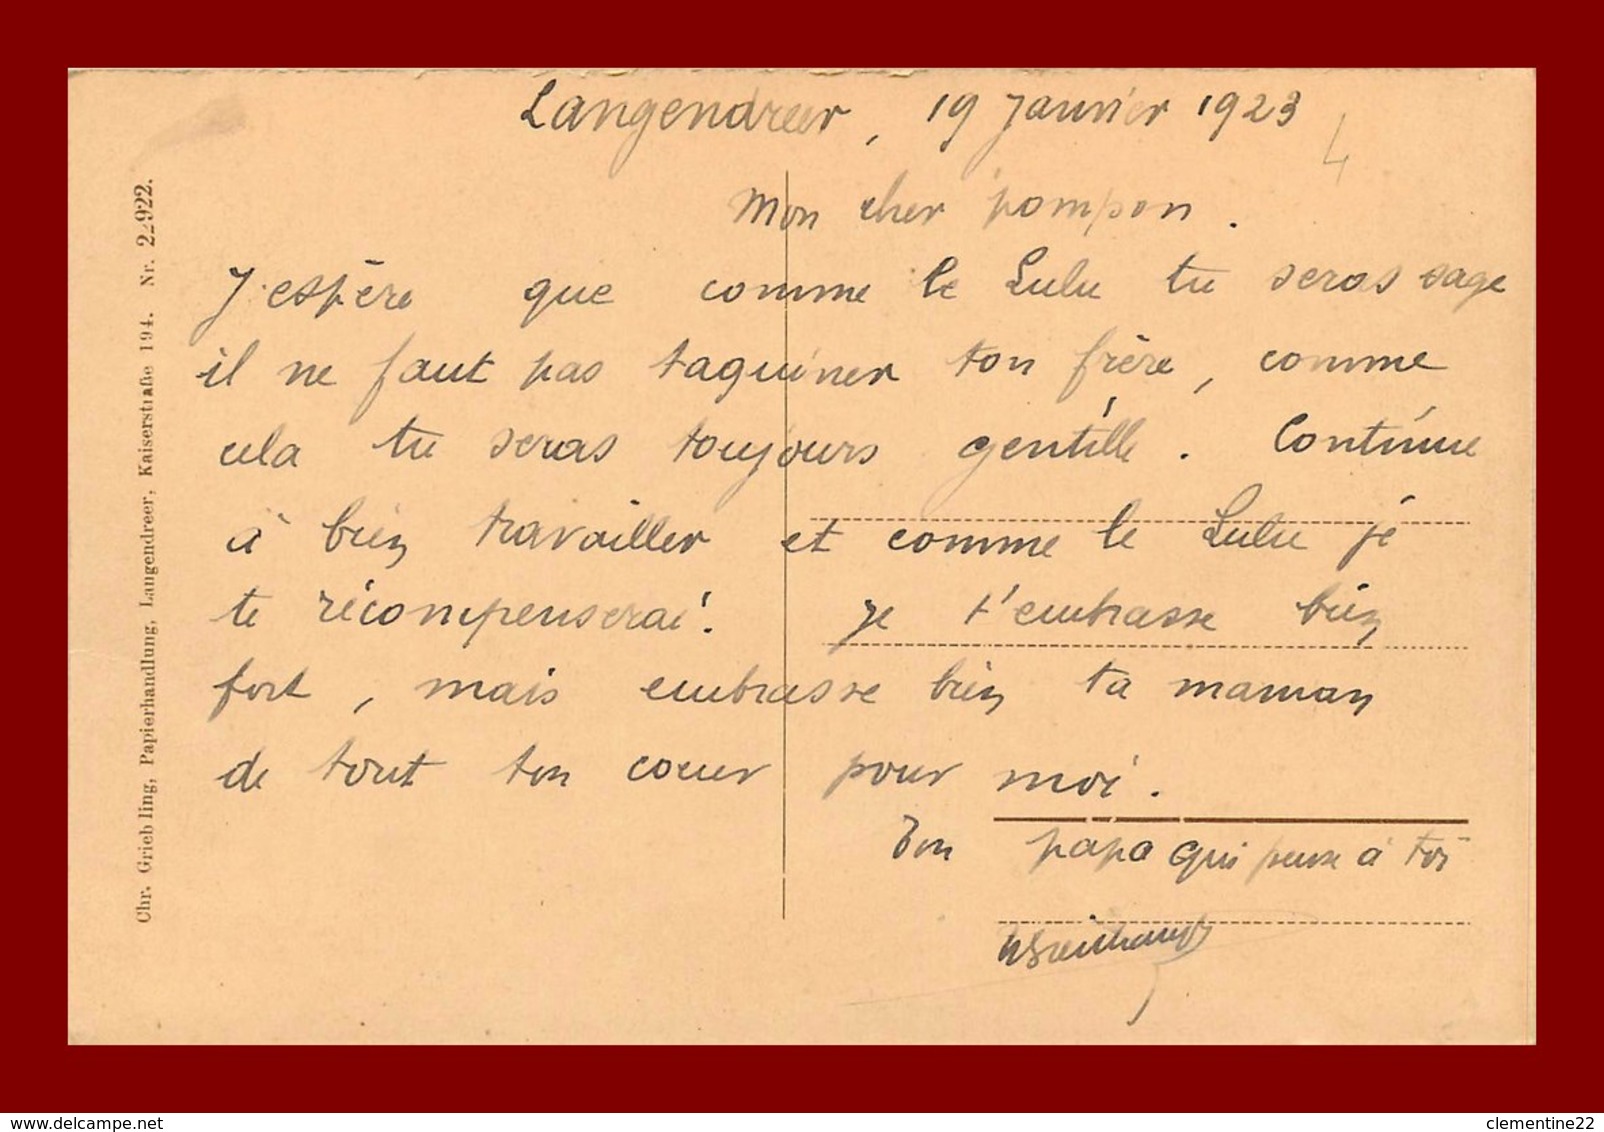 Langendreer, 19 Janvier 1923
4
Mon cher pompon.
J'espère que comme le Lulu tu seras sage
il ne faut pas taquiner ton frère, comme
cela tu seras toujours gentille. Continue
à bien travailler et comme le Lulu je
te récompenserai. Je t'embrasse bien
fort, mais embrasse bien ta maman
de tout ton coeur pour moi.
Ton papa qui pense à toi
Chr. Griebling, Papierhandlung, Langendreer, Kaiserstraße 194. Nr. 22922.
www.delcampe.net
clementine22